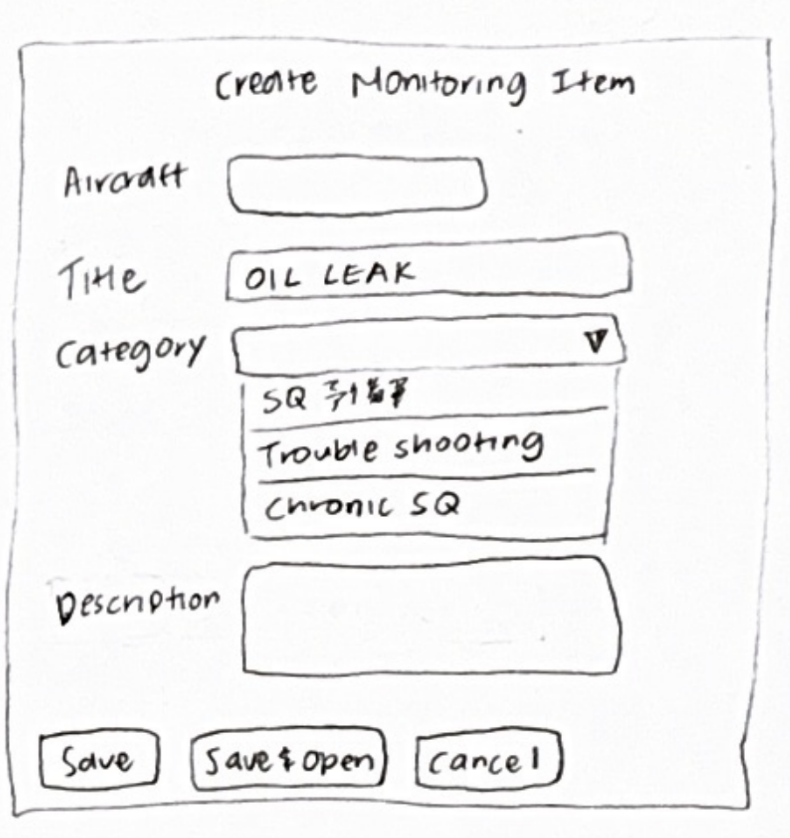 Create Monitoring Item
Aircraft
Title OIL LEAK
Category
SQ
Trouble shooting
Chronic SQ
Description
Save Save & Open Cancel